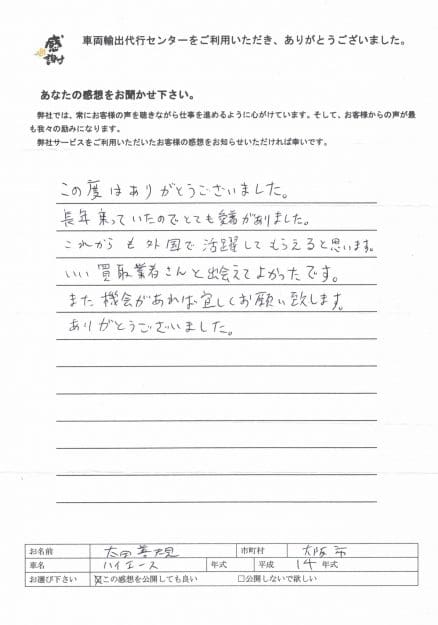 感謝
車両輸出代行センターをご利用いただき、ありがとうございました。
あなたの感想をお聞かせ下さい。
弊社では、常にお客様の声を聴きながら仕事を進めるように心がけています。そして、お客様からの声が最
も我々の励みになります。
弊社サービスをご利用いただいたお客様の感想をお知らせいただければ幸いです。
この度はありがとうございました。
長年乗っていたのでとても愛着がありました。
これからも外国で活躍してもらえると思います。
いい買取業者さんと出会えてよかったです。
また機会があれば宜しくお願い致します。
ありがとうございました。
お名前 太田善規 市町村 大阪市
車名 ハイエース 年式 平成 14年式
お選び下さい ☒この感想を公開しても良い □公開しないで欲しい